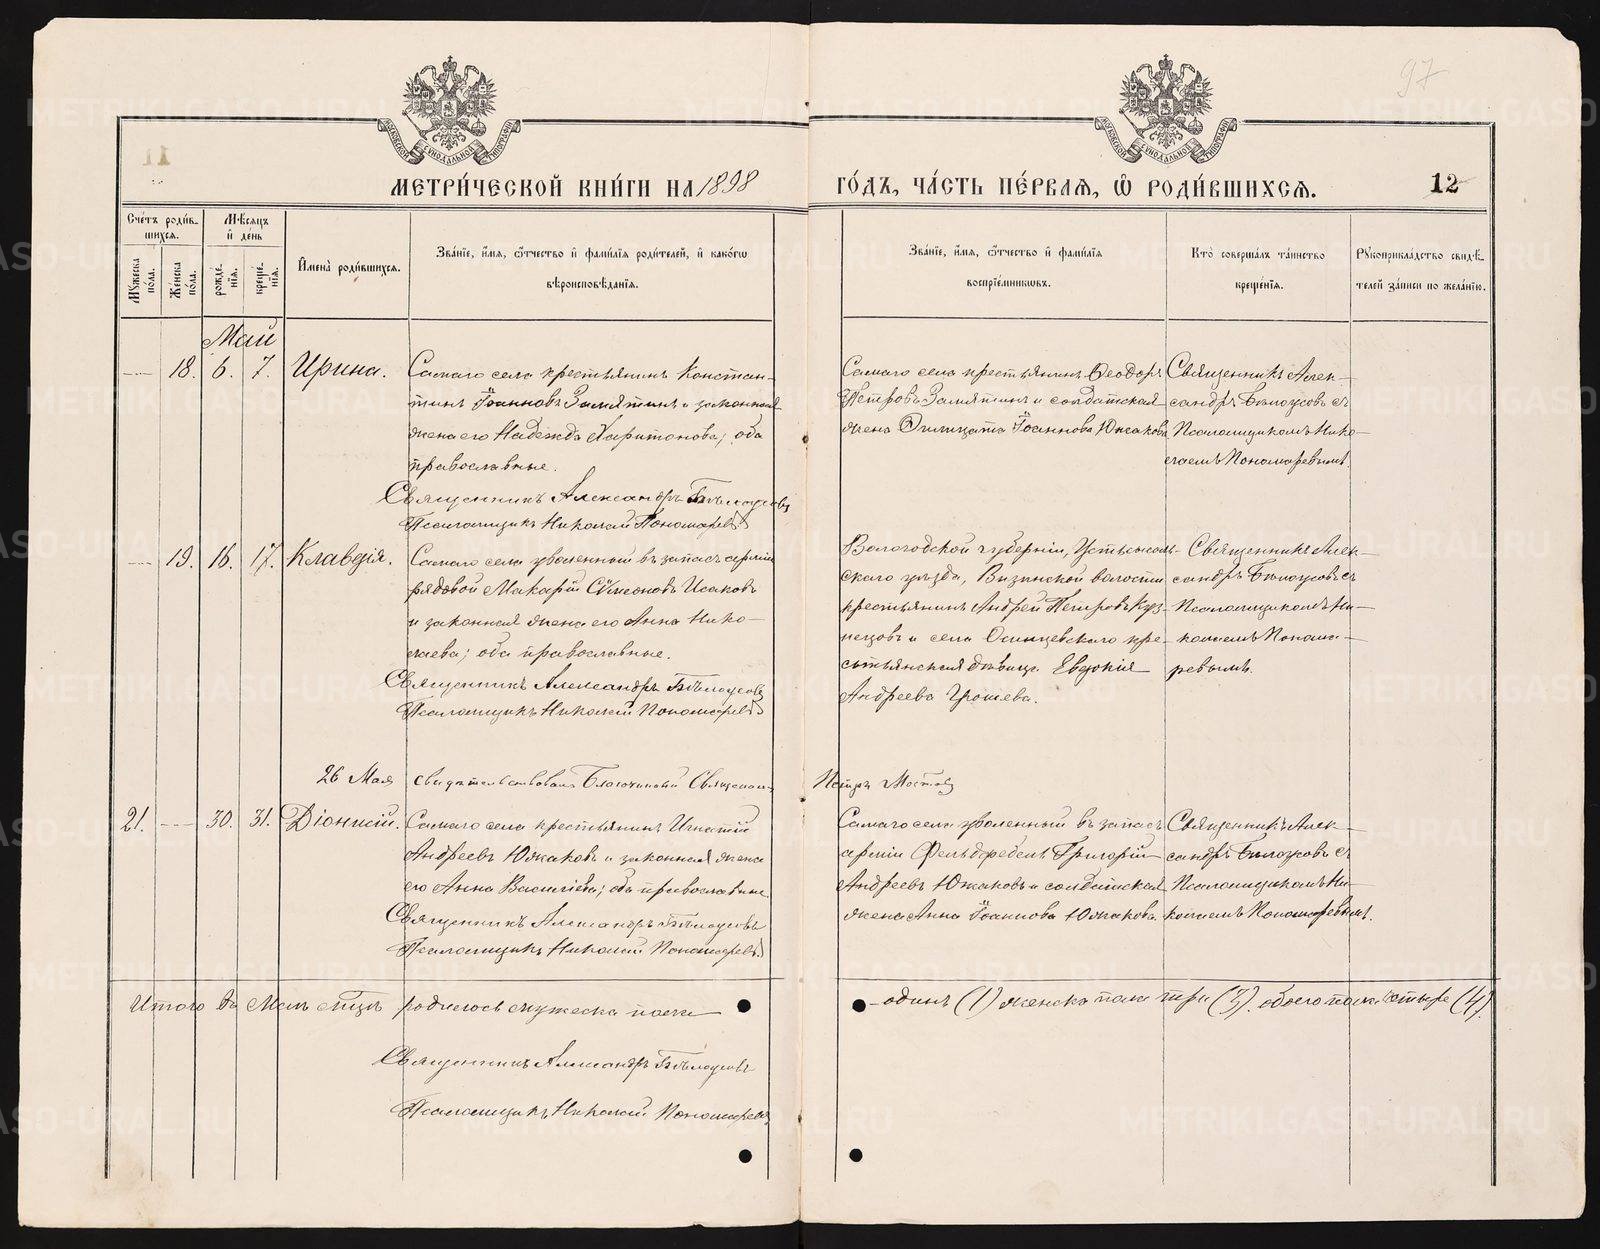 97
11
МЕТРИ́ЧЕСКОЙ КНИ́ГИ НА 1898 ГО́ДЪ, ЧА́СТЬ ПЕ́РВАЯ, Ѽ РОДИ́ВШИХСЯ.
12
Сче́тъ роди́вшихся.
Мѣ́сяцъ и де́нь
Му́жеска по́ла.
Же́нска по́ла.
рожде́нія.
креще́нія.
И҆мена̀ роди́вшихся.
Зва́нїе, и҆́мя, ѻ҆́тчество и҆ фами́лїя роди́телей, и҆ како́гѡ
вѣроисповѣ́данїя.
Зва́нїе, и҆́мя, ѻ҆́тчество и҆ фами́лїя
воспрїе́мникѡвъ.
Кто̀ соверша́лъ та́инство
креще́нїя.
Рꙋкоприкла́дство свидѣ́-
телей за́писи по жела́нїю.
Май
— 18. 6. 7. Ирина.
Самаго села крестьянинъ Констан-
тинъ Іоанновъ Замятинъ и законная
жена его Надежда Харитонова; оба
православные.
Священникъ Александръ Бѣлоусовъ
Псаломщикъ Николай Пономаревъ
Самаго села крестьянинъ Ѳеодоръ
Петровъ Замятинъ и солдатская
жена Іоаннова Южакова
Священникъ Алек-
сандръ Бѣлоусовъ съ
Псаломщикомъ Нико-
лаемъ Пономаревымъ.
— 19. 16. 17. Клавдія.
Самаго села уволенный въ запасъ арміи
рядовой Макарій Сѵмеоновъ Исаковъ
и законная жена его Анна Нико-
лаева; оба православные.
Священникъ Александръ Бѣлоусовъ
Псаломщикъ Николай Пономаревъ
Вологодской губерніи, Устьсысоль-
скаго уѣзда, Визинской волости
крестьянинъ Андрей Петровъ Куз-
нецовъ и села Осинцевскаго кре-
стьянская дѣвица Евдокія
Андреева Грошева.
Священникъ Алек-
сандръ Бѣлоусовъ съ
Псаломщикомъ Ни-
колаемъ Понома-
ревымъ.
26 Мая свидѣтельствовалъ Благочинный Священникъ Петръ Мостов
21. — 30. 31. Діонисій.
Самаго села крестьянинъ Игнатій
Андреевъ Южаковъ и законная жена
его Анна Василіева; оба православные.
Священникъ Александръ Бѣлоусовъ
Псаломщикъ Николай Пономаревъ.
Самаго села уволенный въ запасъ
арміи Фельдфебель Григорій
Андреевъ Южаковъ и солдатская
жена Анна Іоаннова Южакова.
Священникъ Алек-
сандръ Бѣлоусовъ съ
Псаломщикомъ Ни-
колаемъ Пономаревымъ.
Итого въ Маѣ мѣсяцѣ родилось мужеска пола — одинъ (1) женска пола три (3). обоего пола четыре (4).
Священникъ Александръ Бѣлоусовъ
Псаломщикъ Николай Пономаревъ
METRIKI.GASO-URAL.RU